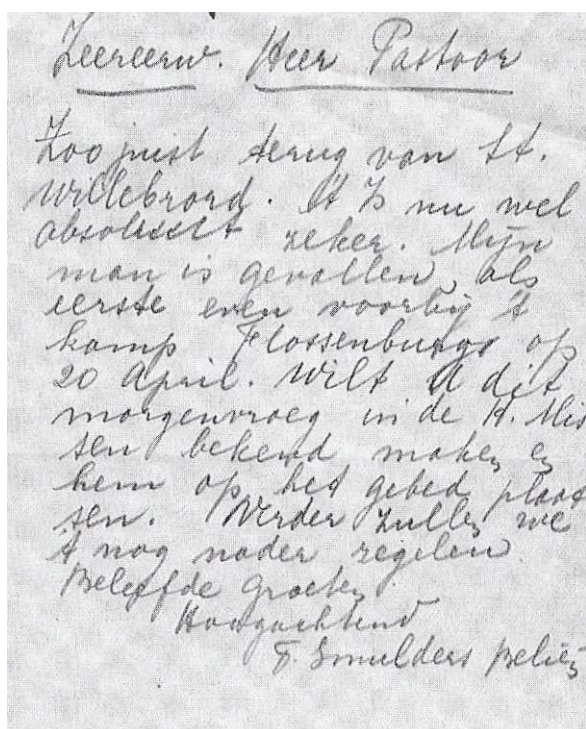 Zeereerw. Heer Pastoor
Zoo juist terug van St.
Willebrord. 't Is nu wel
absoluut zeker. Mijn
man is gevallen als
eerste even voorbij 't
kamp Flossenburg op
20 April. Wilt U dit
morgenvroeg in de H. Mis
sen bekend maken en
hem op het gebed plaat
sen. Verder zullen we
't nog nader regelen.
Beleefde Groeten
Hoogachtend
F. Smulders